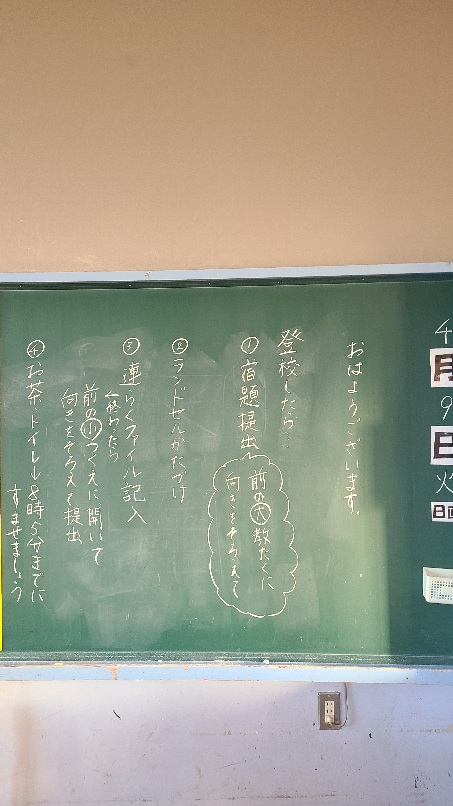 4
月
9
日
火
日直
おはようございます。
登校したら…
①宿題提出
前の大教だくに
向きをそろえて
②ランドセルかたづけ
③連らくファイル記入
終わったら
前の小つくえに開いて
向きをそろえて提出
④お茶・トイレ↓8時5分までに
すませましょう